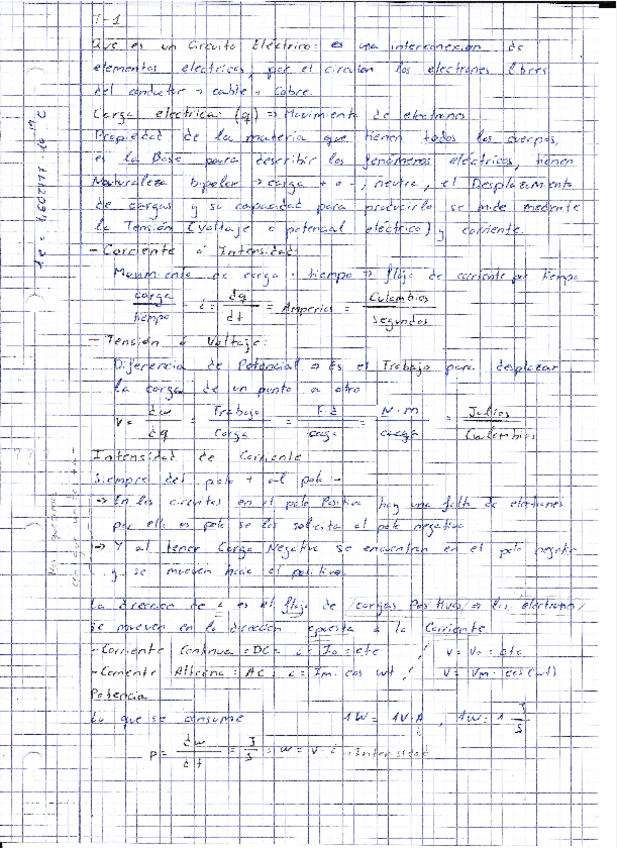 1-1
Que es un Circuito Eléctrico: es una interconexión de
elementos electricos, por el circulan los electrones libres
del conductor → cable → Cobre.
Carga electrica: (q) → Movimiento de electrones
Propiedad de la materia que tienen todos los cuerpos,
es la Base para describir los fenómenos eléctricos, tienen
Naturaleza bipolar → carga + o -, neutra, el Desplazamiento
de cargas y su capacidad para producirlo se mide mediente
la Tensión (voltaje o potencial eléctrico) y corriente.
- Corriente ó Intensidad:
Movimiento de carga · tiempo → flujo de corriente por tiempo
carga / tiempo = i = dq / dt = Amperios = Culombios / Segundos
- Tensión ó Voltaje:
Diferencia de Potencial → Es el Trabajo para desplazar
la carga de un punto a otro
V = dw / dq = Trabajo / Carga = F·d / carga = N·M / carga = Julios / Culombios
Intensidad de Corriente
Siempre del polo + al polo -
→ En los circuitos en el polo Positivo hay una falta de electrones
por ello es polo se los solicita al polo negativo
→ Y al tener Carga Negativa se encuentran en el polo negativo
y se mueven hacia el positivo.
La dirección de i es el flujo de cargas Positivas → los electrones
se mueven en la dirección opuesta a la Corriente
- Corriente Continua = DC = i = Io = cte / V = Vo = cte
- Corriente Alterna = AC: i = Im · cos wt / V = Vm · cos(wt)
Potencia
Lo que se consume 1W = 1V·A, 1W = 1 J / S
P = dw / dt = J / S = W = V · i
1e = 1,602177 · 10⁻¹⁹ C